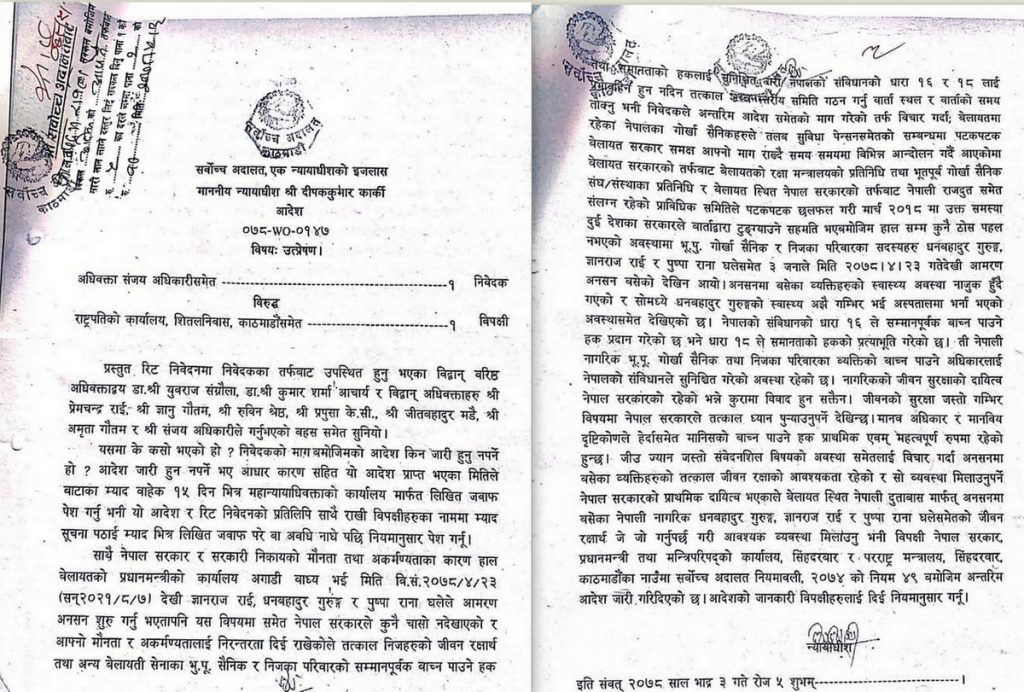 सर्वोच्च अदालत
काठमाडौं
सर्वोच्च अदालत, एक न्यायाधीशको इजलास
माननीय न्यायाधीश श्री दीपककुमार कार्की
आदेश
०७८-WO-०१४७
विषयः उत्प्रेषण।
अधिवक्ता संजय अधिकारीसमेत ----------------------------------१ निवेदक
विरुद्ध
राष्ट्रपतिको कार्यालय, शितलनिवास, काठमाडौंसमेत --------------------१ विपक्षी
प्रस्तुत रिट निवेदनमा निवेदकका तर्फबाट उपस्थित हुनु भएका विद्वान् वरिष्ठ
अधिवक्ताद्वय डा.श्री युवराज संग्रौला, डा.श्री कुमार शर्मा आचार्य र विद्वान् अधिवक्ताहरु श्री
प्रेमचन्द्र राई, श्री ज्ञानु गौतम, श्री रुविन श्रेष्ठ, श्री प्रपुसा के.सी., श्री जीतबहादुर मडै, श्री
अमृता गौतम र श्री संजय अधिकारीले गर्नुभएको बहस समेत सुनियो।
यसमा के कसो भएको हो ? निवेदकको माग बमोजिमको आदेश किन जारी हुनु नपर्ने
हो ? आदेश जारी हुन नपर्ने भए आधार कारण सहित यो आदेश प्राप्त भएका मितिले
वाटाका म्याद वाहेक १५ दिन भित्र महान्यायाधिवक्ताको कार्यालय मार्फत लिखित जवाफ
पेश गर्नु भनी यो आदेश र रिट निवेदनको प्रतिलिपि साथै राखी विपक्षीहरुका नाममा म्याद
सूचना पठाई म्याद भित्र लिखित जवाफ परे वा अवधि नाघे पछि नियमानुसार पेश गर्नू।
साथै नेपाल सरकार र सरकारी निकायको मौनता तथा अकर्मण्यताका कारण हाल
बेलायतको प्रधानमन्त्रीको कार्यालय अगाडी वाध्य भई मिति वि.सं.२०७८/४/२३
(सन्२०२१/८/७) देखी ज्ञानराज राई, धनबहादुर गुरुङ्ग र पुष्पा राना घलेले आमरण
अनसन शुरु गर्नु भएतापनि यस विषयमा समेत नेपाल सरकारले कुनै चासो नदेखाएको र
आफ्नो मौनता र अकर्मण्यतालाई निरन्तरता दिई राखेकोले तत्काल निजहरुको जीवन रक्षार्थ
तथा अन्य बेलायती सेनाका भु.पू. सैनिक र निजका परिवारको सम्मानपूर्वक बाच्न पाउने हक
तथा समानताको हकलाई सुनिश्चित गरी नेपालको संविधानको धारा १६ र १८ लाई
प्रभावहिन हुन नदिन तत्काल उच्चस्तरीय समिति गठन गर्नु वार्ता स्थल र वार्ताको समय
तोक्नु भनी निवेदकले अन्तरिम आदेश समेतको माग गरेको तर्फ विचार गर्दा; बेलायतमा
रहेका नेपालका गोर्खा सैनिकहरुले तलब सुविधा पेन्सनसमेतको सम्बन्धमा पटकपटक
बेलायत सरकार समक्ष आफ्नो माग राख्दै समय समयमा विभिन्न आन्दोलन गर्दै आएकोमा
बेलायत सरकारको तर्फबाट बेलायतको रक्षा मन्त्रालयको प्रतिनिधि तथा भूतपूर्व गोर्खा सैनिक
संघ/संस्थाका प्रतिनिधि र बेलायत स्थित नेपाल सरकारको तर्फबाट नेपाली राजदुत समेत
संलग्न रहेको प्राविधिक समितिले पटकपटक छलफल गरी मार्च २०१८ मा उक्त समस्या
दुई देशका सरकारले वार्ताद्वारा टुङ्ग्याउने सहमति भएबमोजिम हाल सम्म कुनै ठोस पहल
नभएको अवस्थामा भू.पू. गोर्खा सैनिक र निजका परिवारका सदस्यहरु धनबहादुर गुरुङ्ग,
ज्ञानराज राई र पुष्पा राना घलेसमेत ३ जनाले मिति २०७८।४।२३ गतेदेखी आमरण
अनसन बसेको देखिन आयो। अनसनमा बसेका व्यक्तिहरुको स्वास्थ्य अवस्था नाजुक हुँदै
गएको र सोमध्ये धनबहादुर गुरुङ्गको स्वास्थ्य अझै गम्भिर भई अस्पतालमा भर्ना भएको
अवस्थासमेत देखिएको छ। नेपालको संविधानको धारा १६ ले सम्मानपूर्वक बाच्न पाउने
हक प्रदान गरेको छ भने धारा १८ ले समानताको हकको प्रत्याभूति गरेको छ। ती नेपाली
नागरिक भू.पू. गोर्खा सैनिक तथा निजका परिवारका व्यक्तिको बाच्न पाउने अधिकारलाई
नेपालको संविधानले सुनिश्चित गरेको अवस्था रहेको छ। नागरिकको जीवन सुरक्षाको दायित्व
नेपाल सरकारको रहेको भन्ने कुरामा विवाद हुन सक्तैन। जीवनको सुरक्षा जस्तो गम्भिर
विषयमा नेपाल सरकारले तत्काल ध्यान पुर्‍याउनुपर्ने देखिन्छ। मानव अधिकार र मानविय
दृष्टिकोणले हेर्दासमेत मानिसको बाच्न पाउने हक प्राथमिक एवम् महत्वपूर्ण रुपमा रहेको
हुन्छ। जीउ ज्यान जस्तो संवेदनशिल विषयको अवस्था समेतलाई विचार गर्दा अनसनमा
बसेका व्यक्तिहरुको तत्काल जीवन रक्षाको आवश्यकता रहेको र सो व्यवस्था मिलाउनुपर्ने
नेपाल सरकारको प्राथमिक दायित्व भएकाले बेलायत स्थित नेपाली दुतावास मार्फत् अनसनमा
बसेका नेपाली नागरिक धनबहादुर गुरुङ्ग, ज्ञानराज राई र पुष्पा राना घलेसमेतको जीवन
रक्षार्थ जे जो गर्नुपर्छ गरी आवश्यक व्यवस्था मिलाउनु भनी विपक्षी नेपाल सरकार,
प्रधानमन्त्री तथा मन्त्रिपरिषद्को कार्यालय, सिंहदरबार र परराष्ट्र मन्त्रालय, सिंहदरबार,
काठमाडौंका नाउँमा सर्वोच्च अदालत नियमावली, २०७४ को नियम ४९ बमोजिम अन्तरिम
आदेश जारी गरिदिएको छ। आदेशको जानकारी विपक्षीहरुलाई दिई नियमानुसार गर्नू।
न्यायाधीश
इति संवत् २०७८ साल भाद्र ३ गते रोज ५ शुभम्------------------।